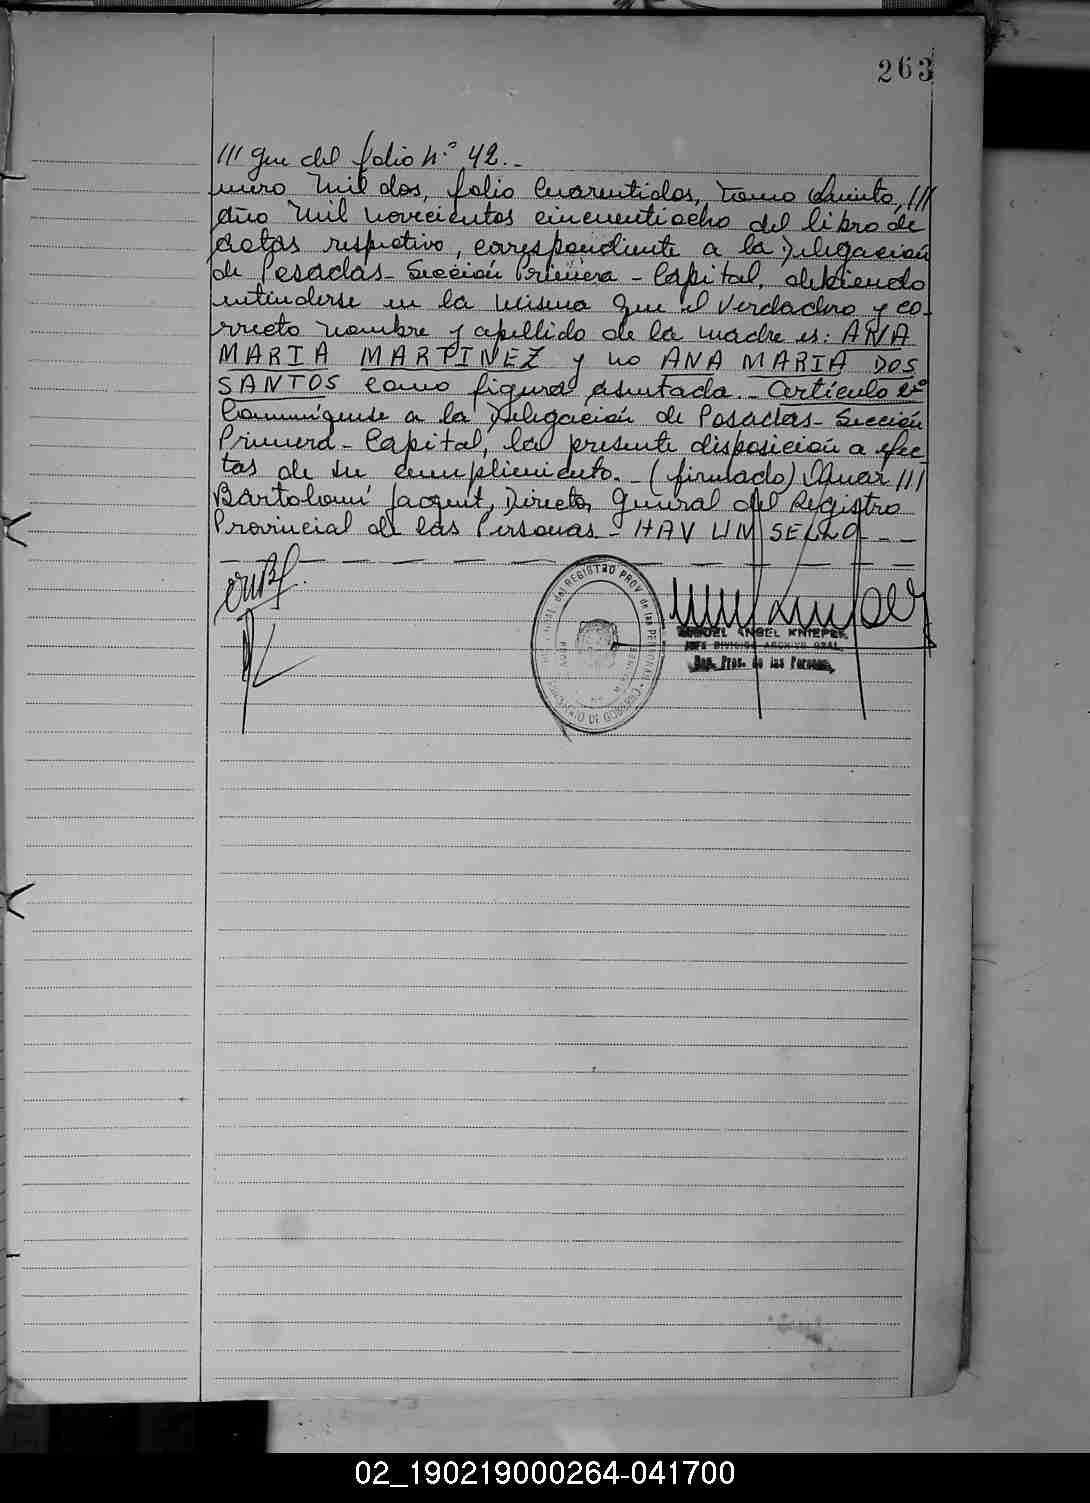 263
/// gue del folio Nº 42.-
mero Mil dos, folio Cuarentidos, Tomo Quinto, ///
año Mil novecientos cincuentiocho del libro de
actas respectivo, correspondiente a la Delegación
de Posadas - Sección Primera - Capital, debiendo
entenderse en la misma que el verdadero y co-
rrecto nombre y apellido de la madre es: ANA
MARIA MARTINEZ y no ANA MARIA DOS
SANTOS como figura asentada.- Artículo 2º
Comuníquese a la Delegación de Posadas - Sección
Primera - Capital, la presente disposición a efec
tos de su cumplimiento.- (firmado) Omar ///
Bartolomé Jacquet, Director General del Registro
Provincial de las Personas.- HAY UN SELLO - - -
del REGISTRO PROV. de las PERSONAS
DE GOBIERNO
MIGUEL ANGEL KNIEPER
JEFE DIVISION ARCHIVO GRAL.
Prov. de las Personas
02_190219000264-041700